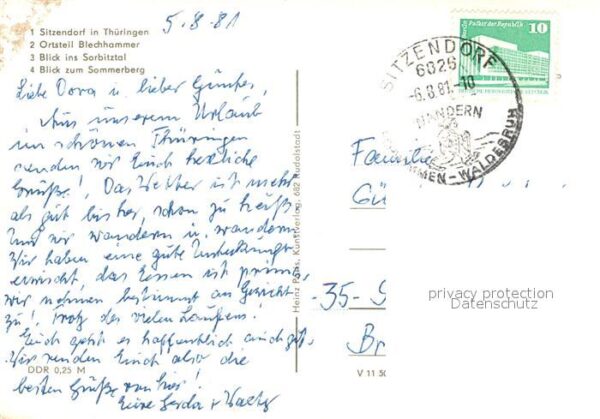 5.8.81
1 Sitzendorf in Thüringen
2 Ortsteil Blechhammer
3 Blick ins Sorbitztal
4 Blick zum Sommerberg
Liebe Dora u. lieber Günter,
Aus unserem Urlaub
im schönen Thüringen
senden wir Euch herzliche
Grüße! Das Wetter ist mehr
als gut bisher, schon zu heiß.
Und wir wandern u. wandern.
Wir haben eine gute Unterkunft
erwischt, das Essen ist prima,
wir nehmen bestimmt an Gewicht
zu! Trotz des vielen Laufens.
Euch geht es hoffentlich auch gut.
Wir senden Euch also die
besten Grüße von hier!
Eure Gerda +
DDR 0,25 M
Heinz Kunstverlag, 682 Rudolstadt
V 11 50
Palast der Republik
10
SITZENDORF
6826
-6.8.81-10
WANDERN
-WALDESRUH
Familie
-35-
privacy protection
Datenschutz